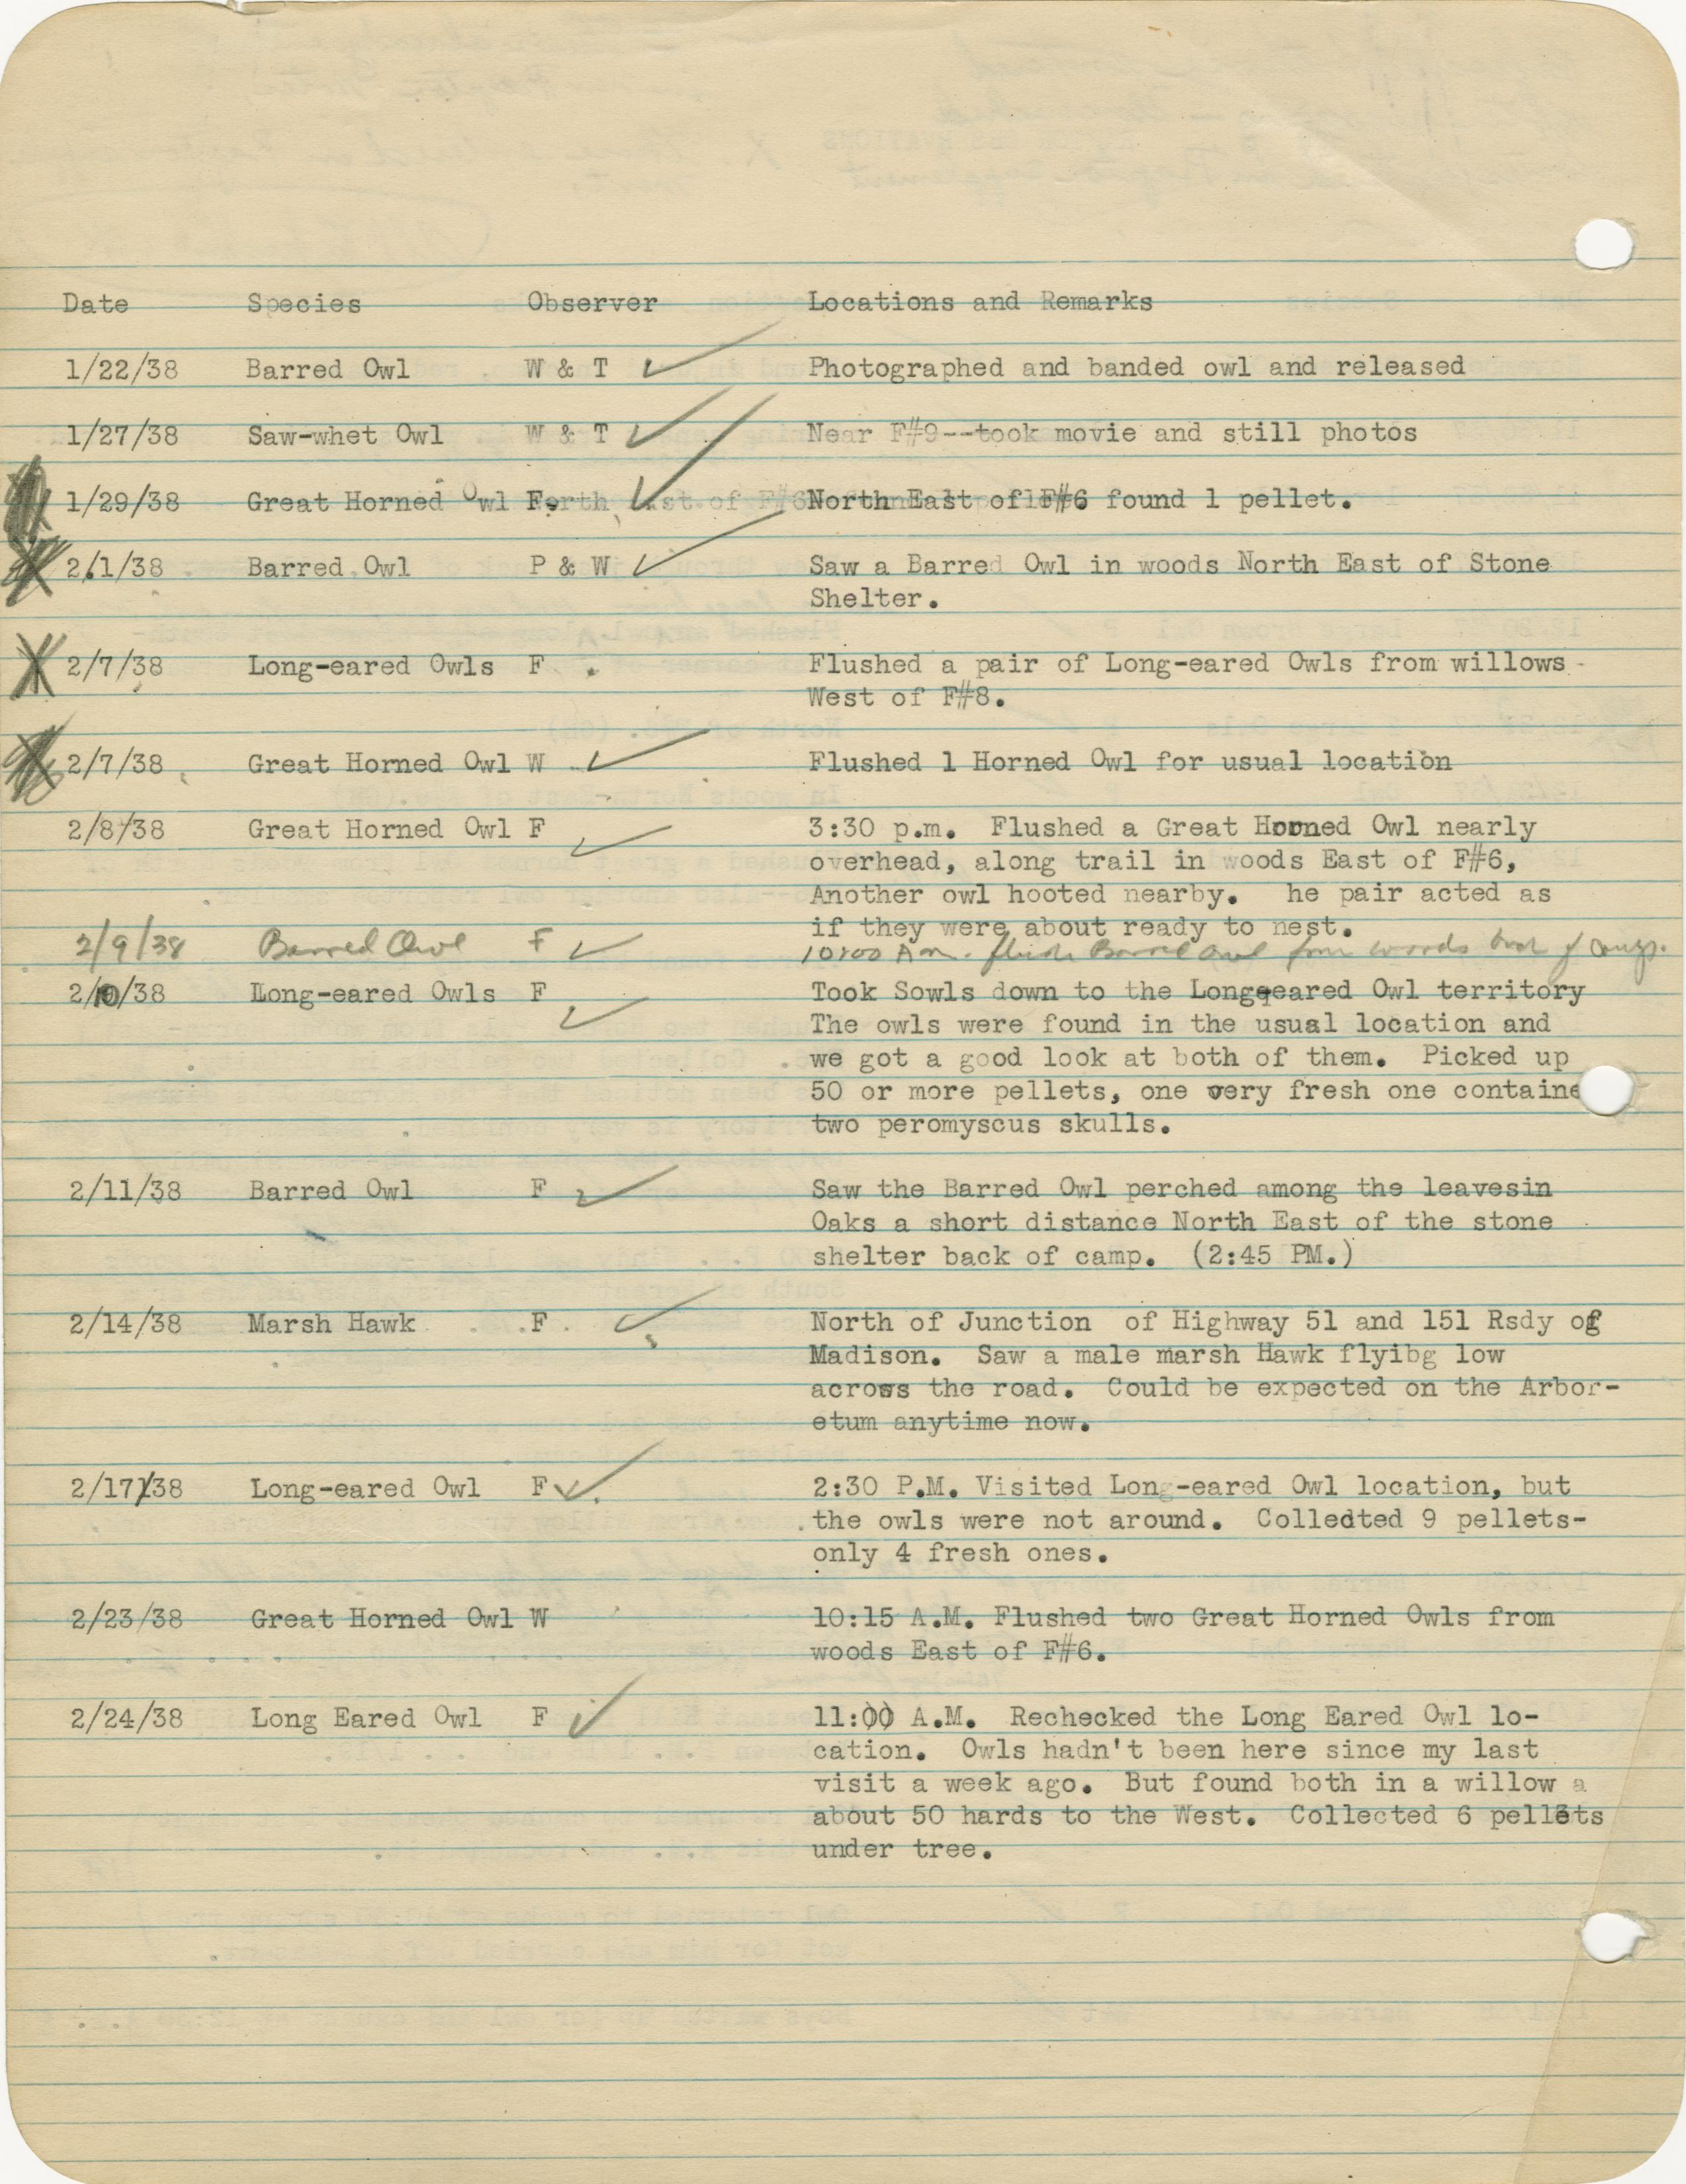 Date Species Observer Locations and Remarks
1/22/38 Barred Owl W & T Photographed and banded owl and released
1/27/38 Saw-whet Owl W & T Near F#9--took movie and still photos
1/29/38 Great Horned Owl F. North East of F#6 found 1 pellet.
2/1/38 Barred Owl P & W Saw a Barred Owl in woods North East of Stone
Shelter.
2/7/38 Long-eared Owls F Flushed a pair of Long-eared Owls from willows
West of F#8.
2/7/38 Great Horned Owl W Flushed 1 Horned Owl for usual location
2/8/38 Great Horned Owl F 3:30 p.m. Flushed a Great Horned Owl nearly
overhead, along trail in woods East of F#6,
Another owl hooted nearby. he pair acted as
if they were about ready to nest.
2/9/38 Barred Owl F 10:00 A.m. flush Barred Owl from woods back of camp.
2/10/38 Long-eared Owls F Took Sowls down to the Long-eared Owl territory
The owls were found in the usual location and
we got a good look at both of them. Picked up
50 or more pellets, one very fresh one containe
two peromyscus skulls.
2/11/38 Barred Owl F Saw the Barred Owl perched among the leavesin
Oaks a short distance North East of the stone
shelter back of camp. (2:45 PM.)
2/14/38 Marsh Hawk F. North of Junction of Highway 51 and 151 Rsdy of
Madison. Saw a male marsh Hawk flyibg low
across the road. Could be expected on the Arbor-
etum anytime now.
2/17/38 Long-eared Owl F 2:30 P.M. Visited Long-eared Owl location, but
the owls were not around. Colledted 9 pellets-
only 4 fresh ones.
2/23/38 Great Horned Owl W 10:15 A.M. Flushed two Great Horned Owls from
woods East of F#6.
2/24/38 Long Eared Owl F 11:00 A.M. Rechecked the Long Eared Owl lo-
cation. Owls hadn't been here since my last
visit a week ago. But found both in a willow a
about 50 hards to the West. Collected 6 pellets
under tree.